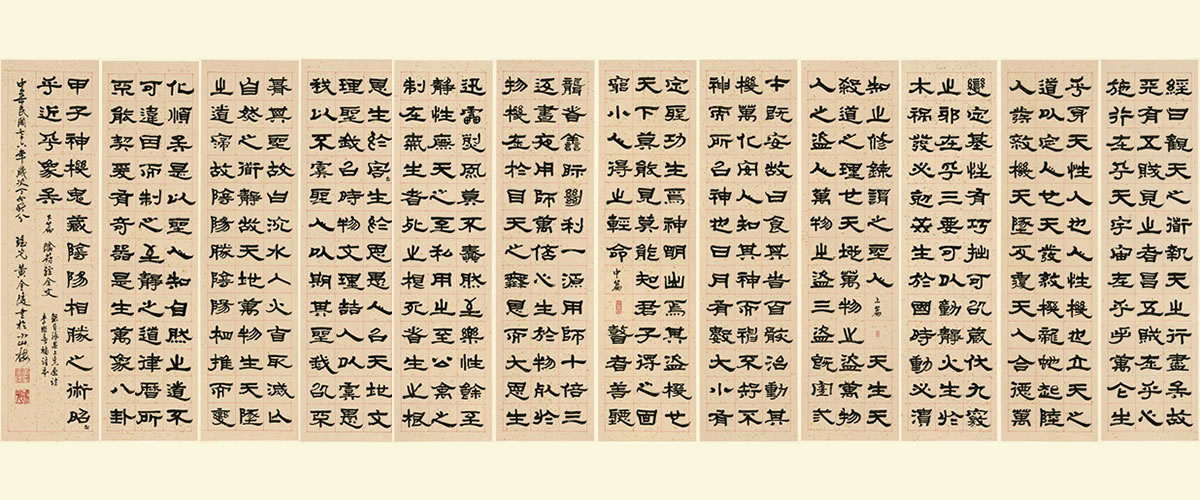 經曰觀天之道執天之行盡矣故
天有五賊見之者昌五賊在乎心
施行在乎天宇宙在乎手萬化生
乎身天性人也人心機也立天之
道以定人也天發殺機龍蛇起陸
人發殺機天地反覆天人合德萬
變定基性有巧拙可以藏伏九竅
之邪在乎三要可以動靜火生於
木禍發必剋姦生於國時動必潰
知之修鍊謂之聖人 上篇 天生天
殺道之理也天地萬物之盜萬物
人之盜人萬物之盜三盜既宜三
才既安故曰食其時百骸治動其
機萬化安人知其神而神不知不
神而所以神也日月有數大小有
定聖功生焉神明出焉其盜機也
天下莫能見莫能知君子得之固
窮小人得之輕命 中篇 瞽者善聽
聾者善視絕利一源用師十倍三
返晝夜用師萬倍心生於物死於
物機在於目天之無恩而大恩生
迅雷烈風莫不蠢然至樂性餘至
靜性廉天之至私用之至公禽之
制在氣生者死之根死者生之根
恩生於害生於恩愚人以天地文
理聖我以時物文理哲人以虞愚
我以不虞聖人以期其聖我以不
期其聖故曰沉水入火自取滅亡
自然之道靜故天地萬物生天地
之道浸故陰陽勝陰陽相推而變
化順矣是以聖人知自然之道不
可違因而制之至靜之道律曆所
不能契爰有奇器是生萬象八卦
甲子神機鬼藏陰陽相勝之術昭
乎近乎象矣 下篇 陰符經全文
中華民國七十六年歲次丁卯 黃金陵書於小山樓